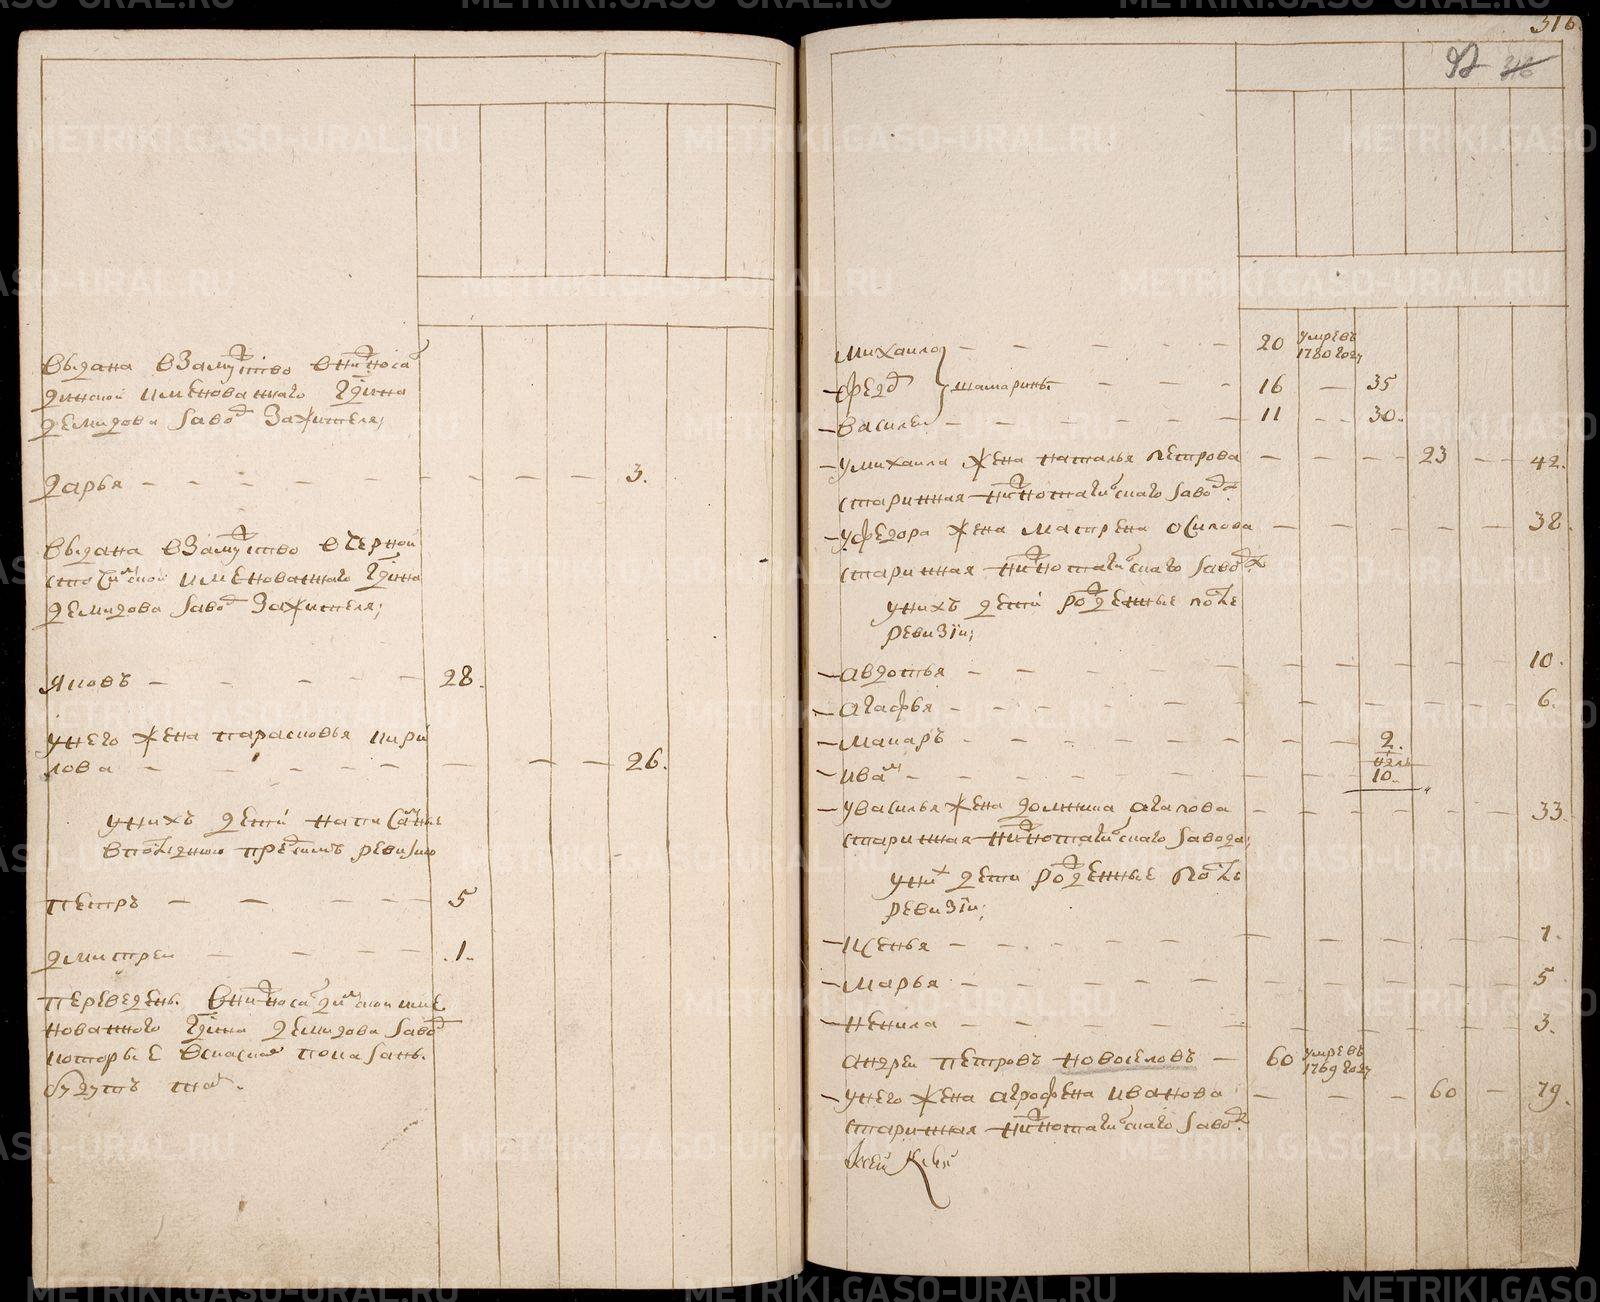 выдана взамужство внижноса
динской имянованнаго Г̃дина
демидова завод зажителя;
дарья — — — — — — — — 3.
выдана взамужство вчерно
источинской имянованнаго Г̃дина
демидова завод зажителя;
яковъ — — — — — 28.
унего жена парасковья кири
лова — — — — — — — — 26.
унихъ дети написанные
впоследнюю пред симъ ревизию
петръ — — — — — 5
дмитреи — — — — .1.
переведены внижносалдинскои имя
нованнаго Г̃дина демидова завод
которые всказке показаны
будутъ той.
316.
92 316
Михаило — — — — — 20 умре въ 1780 году
Федор шамарины — — — 16 — 35
Василеи — — — — — — 11 — — 30.
умихаила жена наталья петрова — — — — 23 — — 42.
старинная нижнотагилскаго завода
уфедора жена матрена осипова — — — — — — 38.
старинная нижнотагилскаго завода
унихъ дети рожденные после
ревизїи;
авдотья — — — — — — — — — — 10.
агафья — — — — — — — — — — 6.
макаръ — — — — — — 2.
иван — — — — — — нљ 10.
увасилья жена домника агапова — — — — — — 33
старинная нижнотагилскаго завода;
уних дети рожденные после
ревизїи;
ксенья — — — — — — — — — — 7.
марья — — — — — — — — — — 5
ненила — — — — — — — — — — 3.
андреи петровъ новоселовъ — 60 умре въ 1769 году
унего жена аграфена иванова — — — — 60 — 79.
старинная нижнотагилскаго завод
METRIKI.GASO-URAL.RU